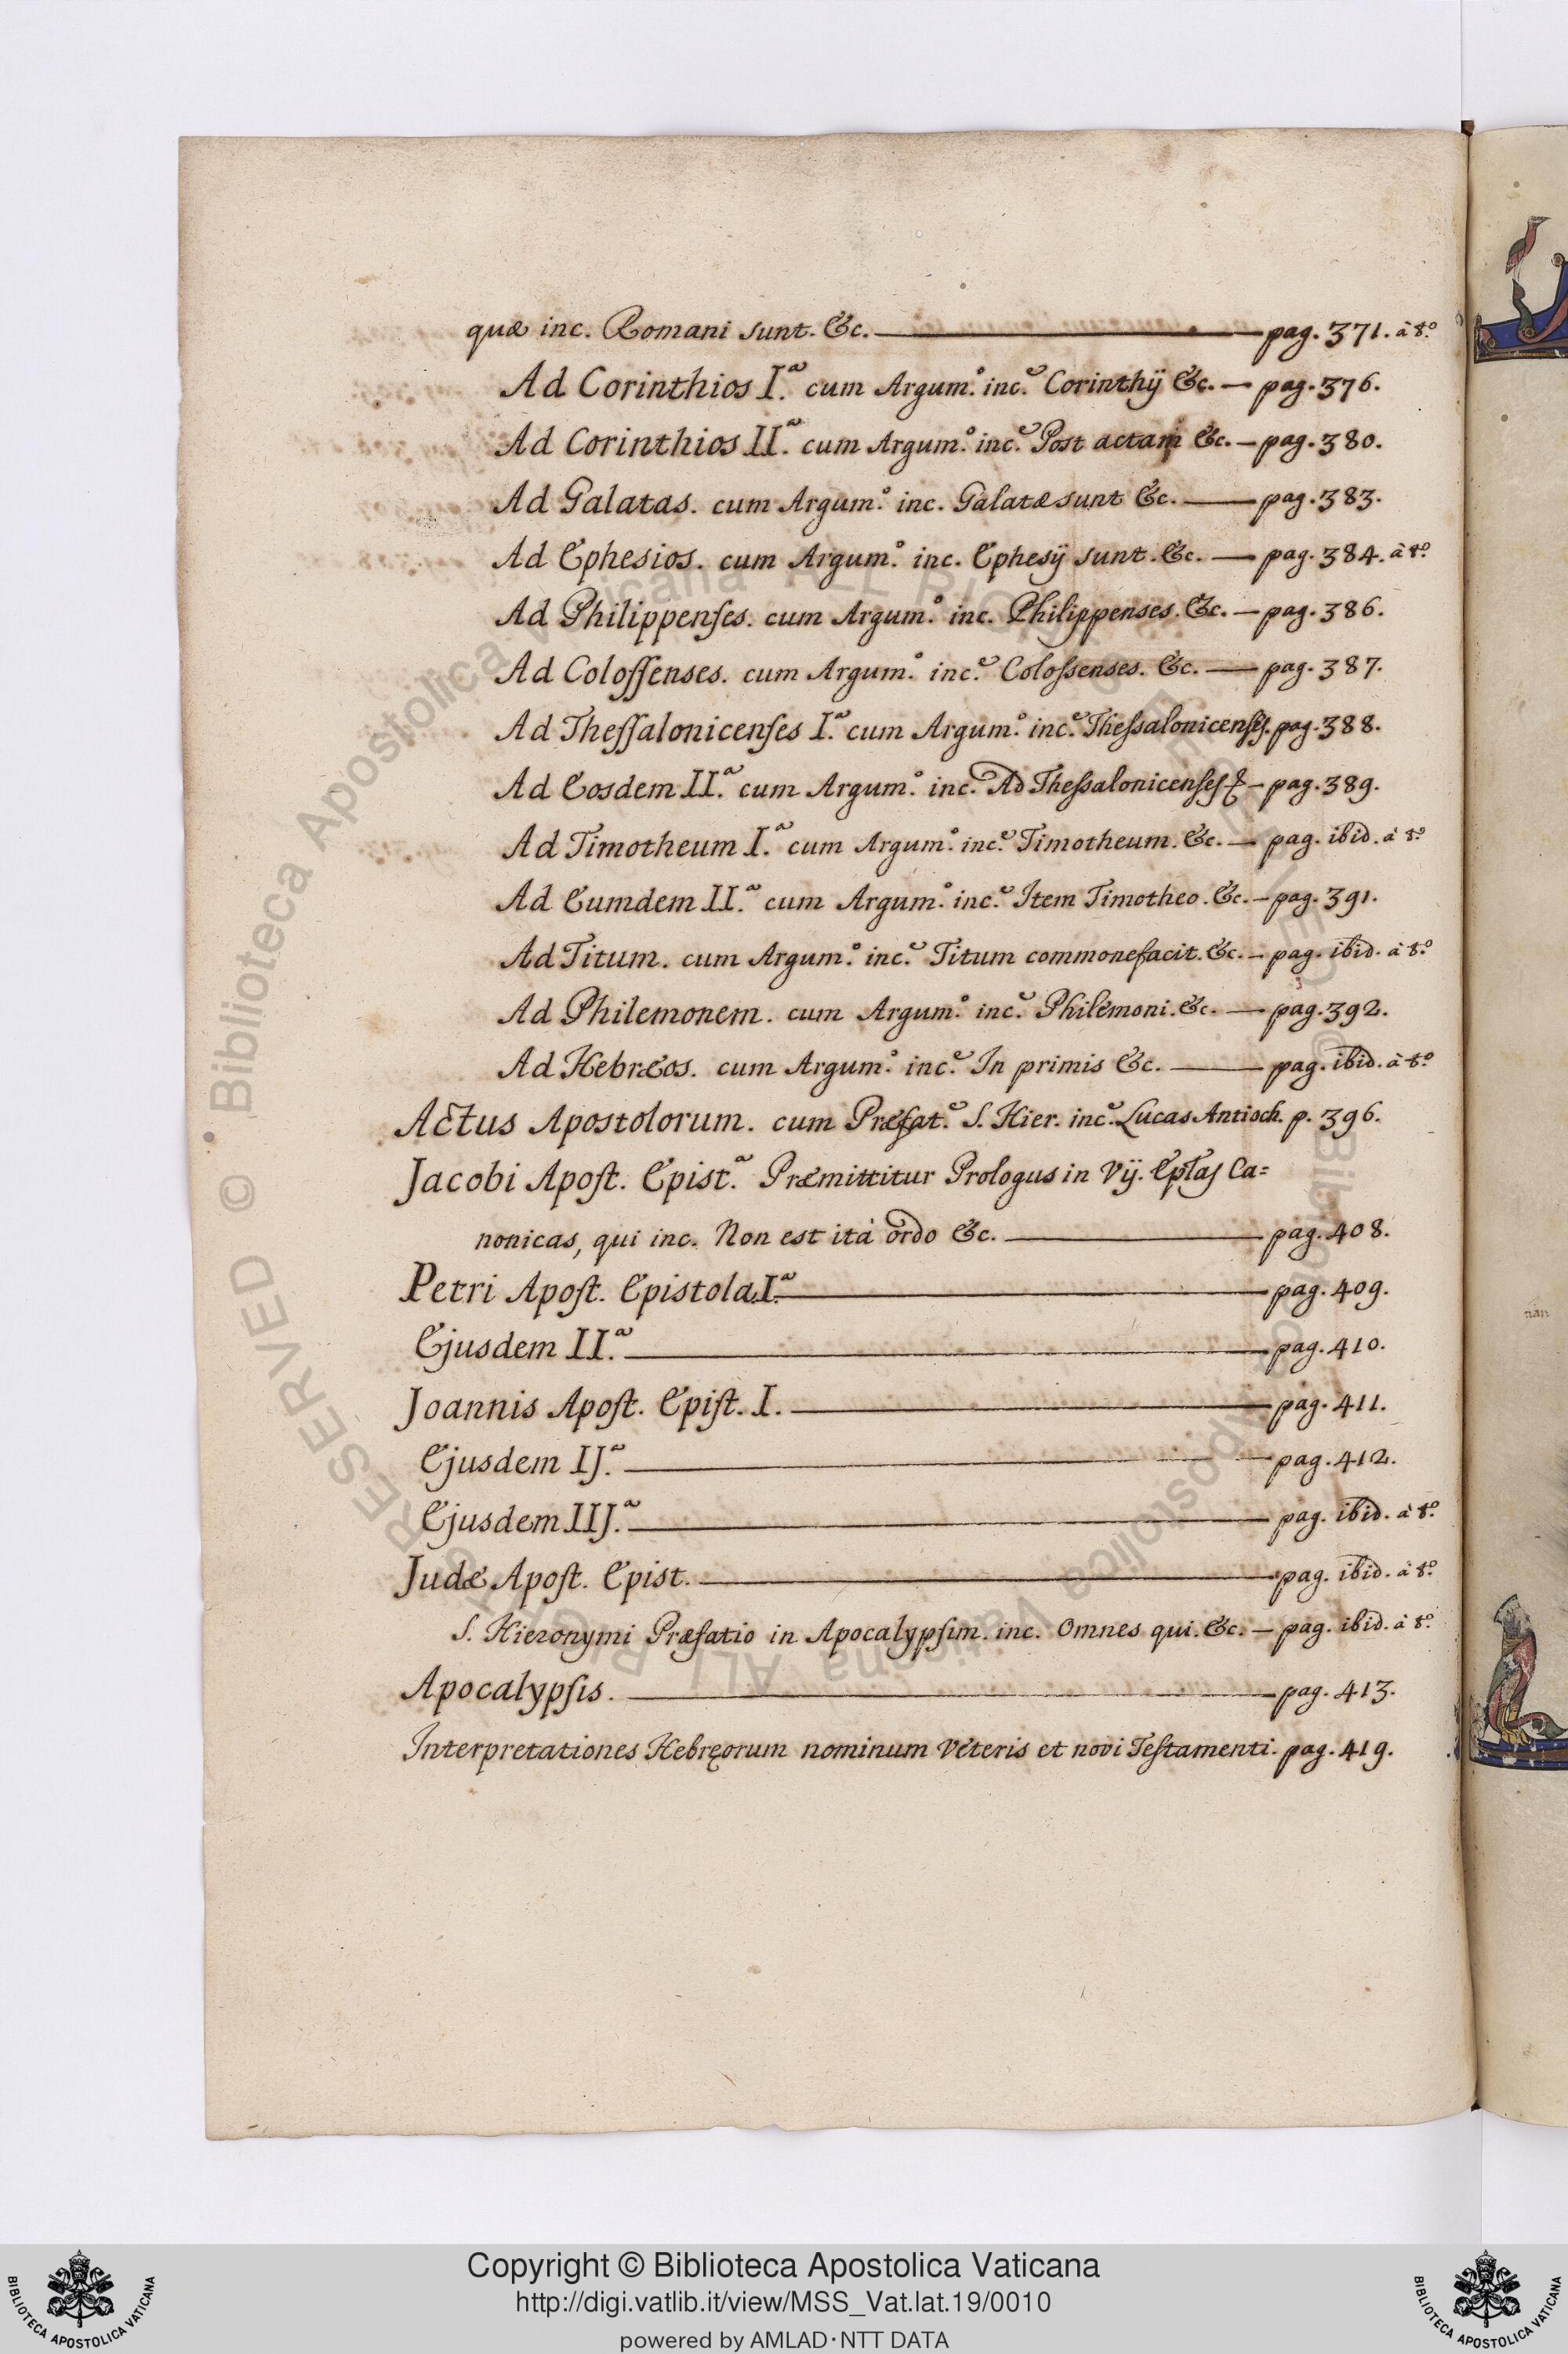 quæ inc. Romani sunt. &c. — pag. 371. à tº.
Ad Corinthios I.ª cum Argum.º inc.e Corinthij &c. — pag. 376.
Ad Corinthios II.ª cum Argum.º inc.e Post actam &c. — pag. 380.
Ad Galatas. cum Argum.º inc. Galatæ sunt &c. — pag. 383.
Ad Ephesios. cum Argum.º inc. Ephesij sunt. &c. — pag. 384. à tº.
Ad Philippenſes. cum Argum.º inc. Philippenses. &c. — pag. 386.
Ad Coloſſenses. cum Argum.º inc.e Coloſsenses. &c. — pag. 387.
Ad Theſſalonicenſes I.ª cum Argum.º inc.e Theſsalonicenſes. pag. 388.
Ad Eosdem II.ª cum Argum.º inc.e Ad Theſsalonicenſeſ & — pag. 389.
Ad Timotheum I.ª cum Argum.º inc.e Timotheum. &c. — pag. ibid. à tº.
Ad Eumdem II.ª cum Argum.º inc.e Item Timotheo. &c. — pag. 391.
Ad Titum. cum Argum.º inc.e Titum commonefacit. &c. — pag. ibid. à tº.
Ad Philemonem. cum Argum.º inc.e Philemoni. &c. — pag. 392.
Ad Hebræos. cum Argum.º inc.e In primis &c. — pag. ibid. à tº.
Actus Apostolorum. cum Præfat.e S. Hier. inc.e Lucas Antioch. p. 396.
Jacobi Apoſt. Epist.ª Præmittitur Prologus in Vij. Epl̃aſ Ca=
nonicas, qui inc. Non est ità ordo &c. — pag. 408.
Petri Apoſt. Epistola I.ª — pag. 409.
Ejusdem II.ª — pag. 410.
Joannis Apoſt. Epiſt. I. — pag. 411.
Ejusdem IJ.ª — pag. 412.
Ejusdem IIJ.ª — pag. ibid. à tº.
Judæ Apoſt. Epist. — pag. ibid. à tº.
S. Hieronymi Præfatio in Apocalypſim. inc. Omnes qui. &c. — pag. ibid. à tº.
Apocalypſis. — pag. 413.
Interpretationes Hebręorum nominum Veteris et novi Teſtamenti. pag. 419.
© Biblioteca Apostolica Vaticana ALL RIGHTS RESERVED
Copyright © Biblioteca Apostolica Vaticana
http://digi.vatlib.it/view/MSS_Vat.lat.19/0010
powered by AMLAD·NTT DATA
BIBLIOTECA APOSTOLICA VATICANA
BIBLIOTECA APOSTOLICA VATICANA